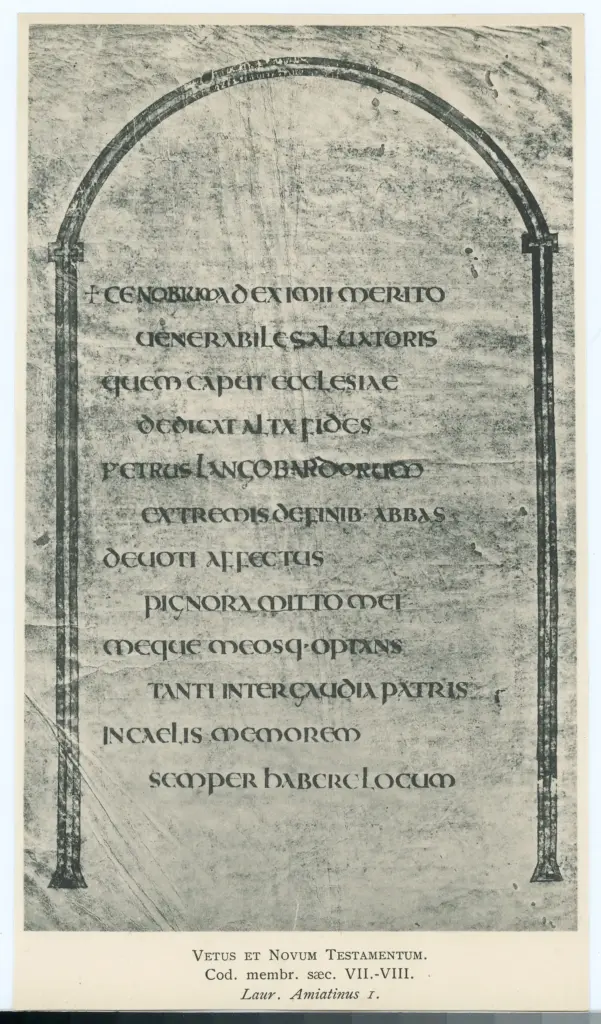 + CENOBIUM AD EXIMII MERITO
UENERABILE SALUATORIS
QUEM CAPUT ECCLESIAE
DEDICAT ALTA FIDES
PETRUS LANGOBARDORUM
EXTREMIS DE FINIB· ABBAS
DEUOTI AFFECTUS
PIGNORA MITTO MEI
MEQUE MEOSQ·OPTANS
TANTI INTER GAUDIA PATRIS
IN CAELIS MEMOREM
SEMPER HABERE LOCUM
VETUS ET NOVUM TESTAMENTUM.
Cod. membr. sæc. VII.-VIII.
Laur. Amiatinus 1.